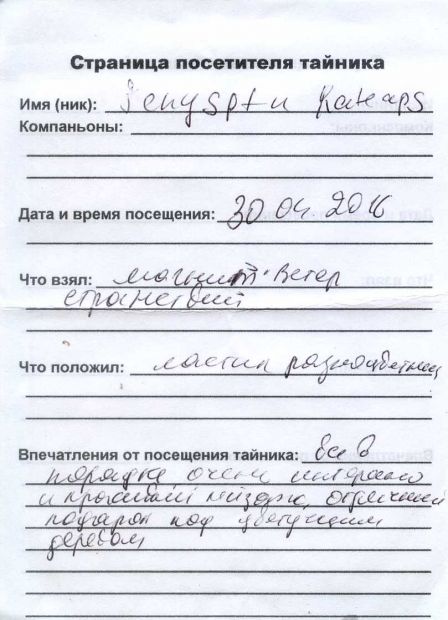 Страница посетителя тайника
Имя (ник):
Компаньоны:
Дата и время посещения: 30 04 2016
Что взял: магнит "Ветер
странствий
Что положил: ластик разноцветный
Впечатления от посещения тайника: все в
порядке очень интересно
и красивый пейзаж, отличный
подарок под цветущим
деревом